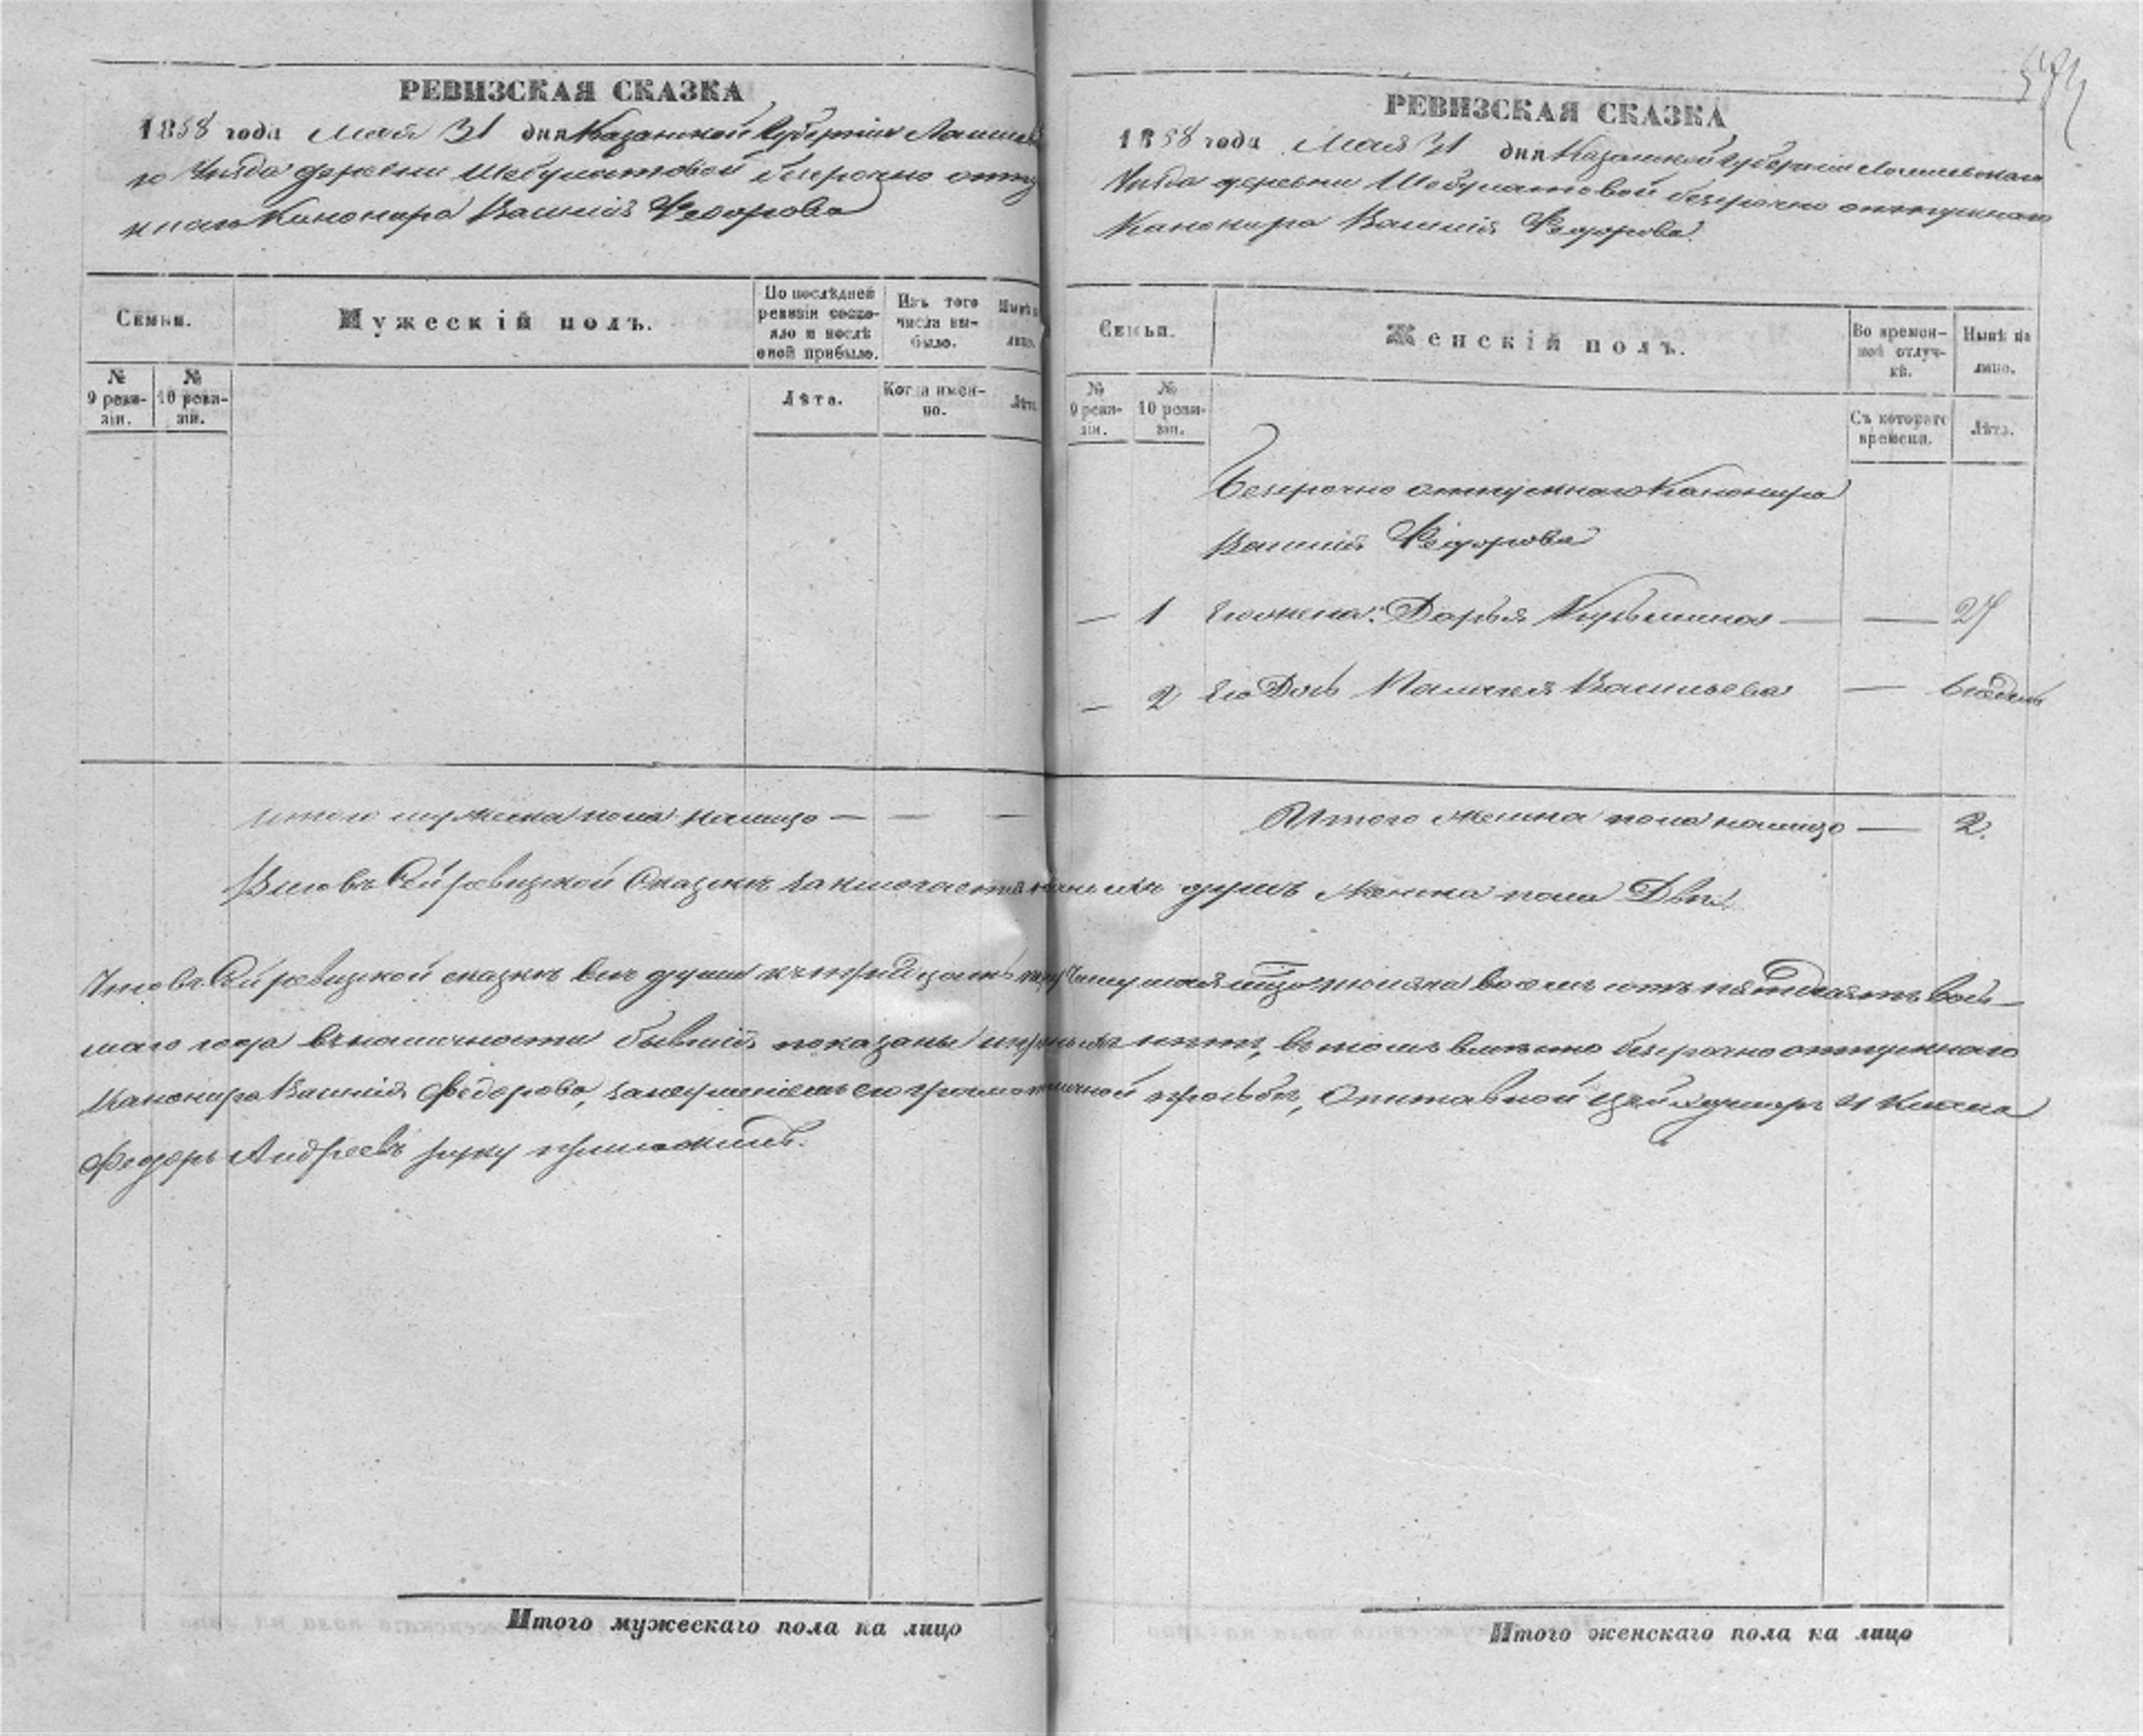 РЕВИЗСКАЯ СКАЗКА
1858 года Мая 31 дня Казанской Губернiи Лаишевска
го Уѣзда деревни Шебулатовой безсрочно отпу
кнаго Канонира Василiя Федорова
Семьи.
Мужескiй полъ.
По послѣдней ревизiи состояло и послѣ оной прибыло.
Изъ того числа выбыло.
Нынѣ на лицо.
№ 9 ревизiи.
№ 10 ревизiи.
Лѣта.
Когда именно.
Лѣта.
итого мужеска пола налицо — — —
РЕВИЗСКАЯ СКАЗКА
1858 года Мая 31 дня Казанской Губернiи Лаишевскаго
Уѣзда деревни Шебулатовой безсрочно отпускнаго
Канонира Василiя Федорова.
Семьи.
Женскiй полъ.
Во временной отлучкѣ.
Нынѣ на лицо.
№ 9 ревизiи.
№ 10 ревизiи.
Съ котораго времени.
Лѣта.
Безсрочно отпускнаго Канонира
Василiя Федорова
— 1 Его жена: Дарья — —
— 2 Его Дочь Васильева — 6 недель
Итого женска пола налицо — 2.
Всего въ сей ревизской сказкѣ душъ женска пола Двѣ
Что въ сей ревизской сказкѣ всѣ души къ тридцать первому мая тысяча восемь сотъ пятдесятъ вось-
маго года въ наличности бывшiя показаны и нѣтъ, въ томъ вмѣсто безсрочно отпускнаго
Канонира Василiя Федорова, его просьбѣ, Отставной
Федоръ Андреевъ руку приложилъ.
Итого мужескаго пола на лицо
Итого женскаго пола на лицо